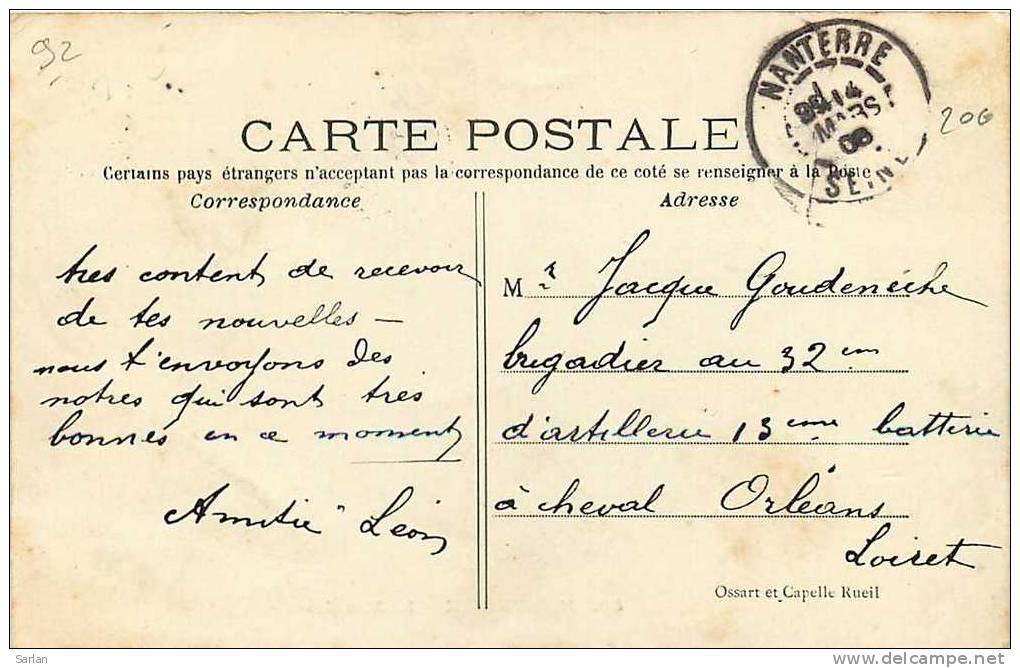 92
NANTERRE
14
MARS
08
SEINE
206
CARTE POSTALE
Certains pays étrangers n'acceptant pas la correspondance de ce coté se renseigner à la Poste
Correspondance
tres content de recevoir
de tes nouvelles —
nous t'envoyons des
notres qui sont très
bonnes en ce moment
Amitié Léon
Adresse
Mr Jacque Goudenèche
brigadier au 32 em
d'artillerie 13 eme batterie
à cheval Orléans
Loiret
Ossart et Capelle Rueil
Sarlan
delcampe.net